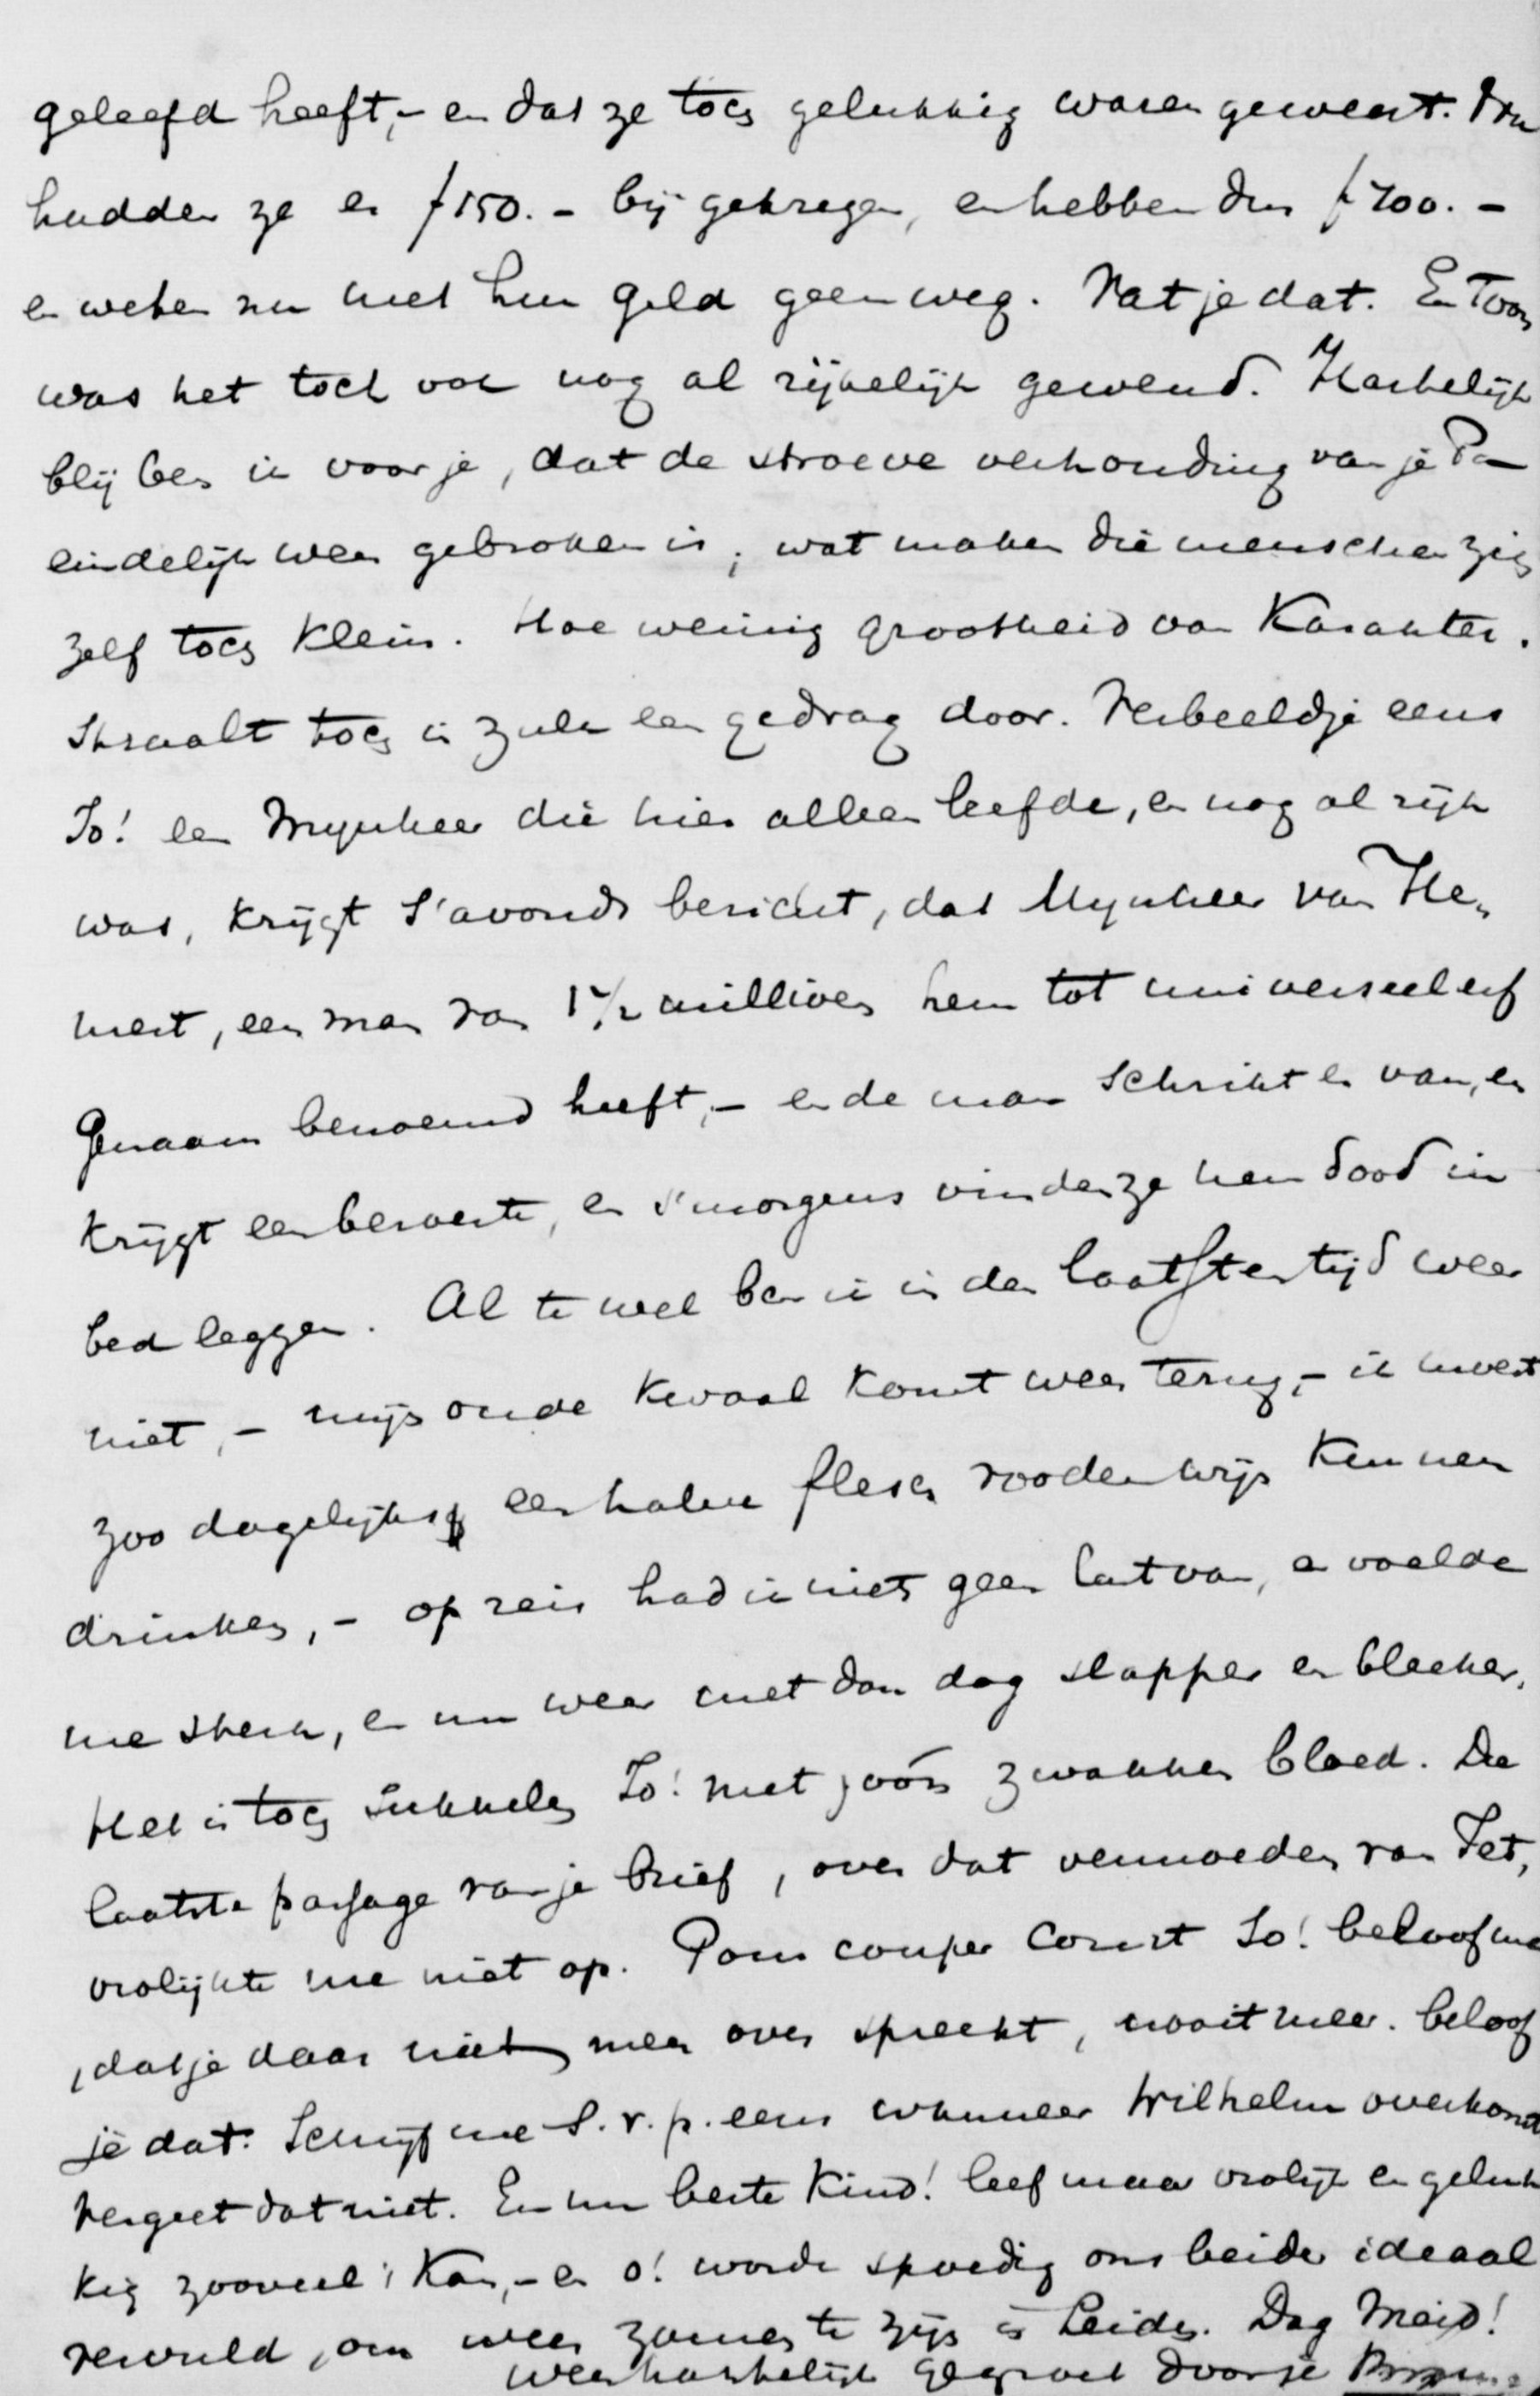 geleefd heeft,- en dat ze toch gelukkig waren geweest. Nu
hadden ze er f 150.- bij gekregen, en hebben dus f 700.-
en weten nu met hun geld geen weg. Vat je dat. En Toos
was het toch ook nog al rijkelijk gewend. Hartelijk
blij ben ik voor je, dat de stroeve verhouding van je Pa
eindelijk weer gebroken is; wat maken die menschen zich
zelf toch klein. Hoe weinig grootheid van Karakter.
Straalt toch in zulk een gedrag door. Verbeeld je eens
Jo! een Mynheer die hier alleen leefde, en nog al rijk
was, krijgt s'avonds bericht, dat Mynheer van He,
mert, een man van 1½ millioen hem tot universeel erf
genaam benoemd heeft,- en de man schrikt er van, en
krijgt een beroerte, en s'morgens vinden ze hem dood in
bed leggen. Al te wel ben ik in den laatsten tijd weer
niet,- mijn oude kwaal komt weer terug,- ik moest
zoo dagelijks een halve flesch rooden wijn kunnen
drinken,- op reis had ik niets geen last van, en voelde
me sterk, en nu weer met den dag slapper en bleeker.
Het is toch sukkelen Jo! met zóó'n zwakken bloed. De
laatste passage van je brief, over dat vermoeden van Jet,
vrolijkte me niet op. Pour couper court Jo! beloof me
, dat je daar niet meer over spreekt, nooit meer. beloof
je dat. Schrijf me S.v.p. eens wanneer Wilhelm overkomt
vergeet dat niet. En nu beste Kind! leef maar vrolijk en geluk
kig zooveel 't Kan,- en o! worde spoedig ons beider ideaal
vervuld, om weer zamen te zijn in Leiden. Dag Meid!
wees hartelijk gegroet door je